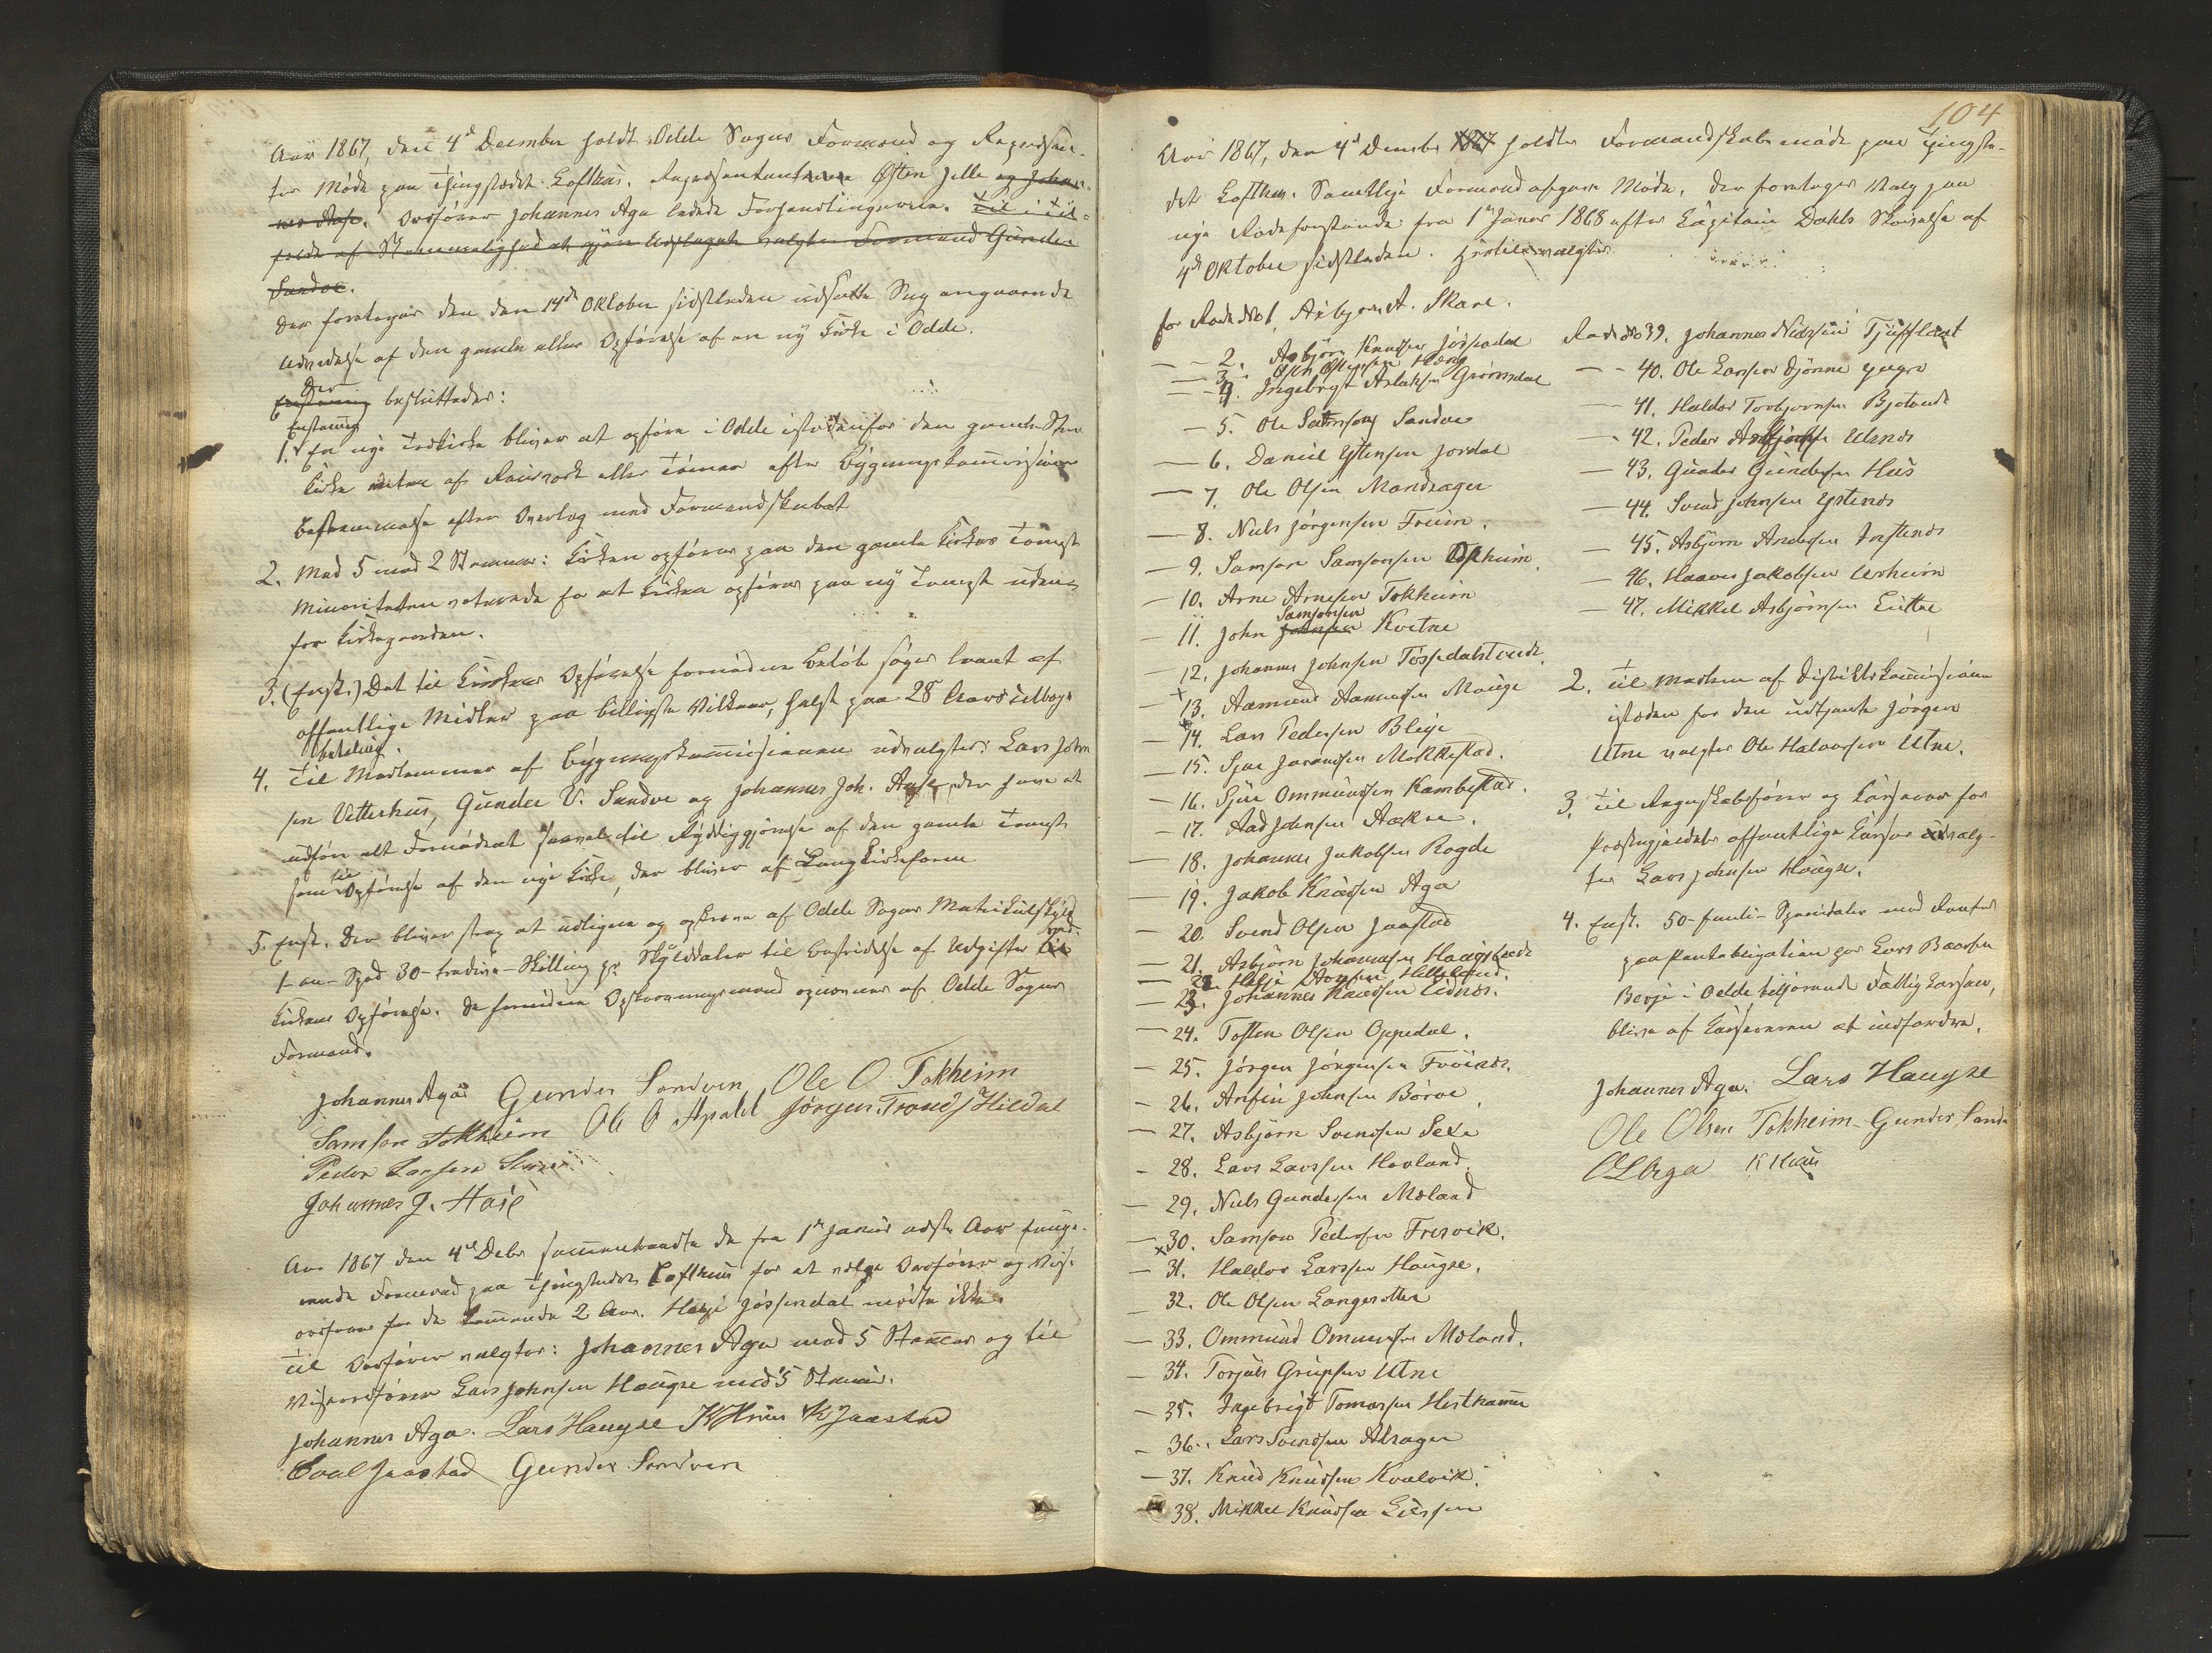 Aar 1867, den 4de December holdt Odde Sogns Formænd og Repræsen-
ter Møde paa Thingstedet Lofthus. Repræsentanterne Østen Jelle og Johan-
nes Hase. Ordfører Johannes Aga ledede Forhandlingerne. Til i Til-
fælde af Stemmelighed at gjøre Udslaget valgtes Formand Gunder
Sandve.
Der foretoges den den 14de Oktober sidstleden udsatte Sag angaaende
Udvidelse af den gamle eller Opførelse af en ny Kirke i Odde.
Der
Enstemmig besluttedes:
Enstemmig
1. En ny Trækirke bliver at opføre i Odde istedenfor den gamle Sten
Kirke enten af Reisværk eller Tømmer efter Bygningskommissionens
Bestemmelse efter Overlæg med Formandskabet
2. Med 5 mod 2 Stemmer: Kirken opføres paa den gamle Kirkes Tomt
Minoriteten voterede for at Kirken opføres paa ny Tomt uden-
for Kirkegaarden.
3. (Enst.) Det til Kirkens Opførelse fornødne Beløb søges laant af
offentlige Midler paa billigste Vilkaar, helst paa 28 Aars Tilbage
betaling.
4. Til Medlemmer af Bygningskommissionen udvalgtes: Lars John
sen Vetterhus, Gunder V. Sandve og Johannes Joh. Hase, der have at
udføre alt Fornødent saavel til Ryddiggjørelse af den gamle Tomt
til
som Opførelse af den nye Kirke, der bliver af Langkirkeform
5. Enst. Der bliver strax at udligne og opkræve af Odde Sogns Matrikulskyld
1-en-Spd 30-tredive-Skilling pr Skylddaler til Bestridelse af Udgifter ved
Kirkens Opførelse. De fornødne Opkrævningsmænd opnævnes af Odde Sogns
Formænd.
Johannes Aga Gunder Sandven Ole O Tokheim
Samson Tokheim Ole O Apald Jørgen Trondsen Hildal
Peder Larsen
Johannes J. Hase
Aar 1867 den 4de Decbr sammentraadte de fra 1ste Januar næste Aar funge-
rende Formænd paa Thingstedet Lofthus for at vælge Ordfører og Vise-
ordfører for de kommende 2 Aar. Helje Jøssendal mødte ikke.
Til Ordfører valgtes: Johannes Aga med 5 Stemmer og til
Viseordfører Lars Johnsen Haugse med 5 Stemmer.
Johannes Aga. Lars Haugse K Huus K Jaastad
Jaastad Gunder Sandven
104
Aar 1867, den 4de December 1867 holdtes Formandskabsmøde paa Thingste-
det Lofthus. Samtlige Formænd afgave Møde. Der foretoges Valg paa
nye Rodeforstandere fra 1ste Januar 1868 efter Kapitain Dahls Skrivelse af
4de Oktober sidstleden. Hertil valgtes:
for Rode No 1, Asbjørn A. Skare.
— — 2. Asbjørn Knudsen Jøssendal
— 3. Østen Østensen Hæreg
— 4. Ingebrigt Aslaksen Grønsdal
— 5. Ole Samsons Sandve
— 6. Daniel Østensen Jordal
— 7. Ole Olsen Mandsager
— 8. Niels Jørgensen Freim.
— 9. Samson Samsonsen Opheim.
— 10. Arne Arnesen Tokheim
Samsonsen
— 11. John Johnsen Kvitne
— 12. Johannes Johnsen Tyssedalstvedt.
— x 13. Aamund Aamundsen Mauge
— 14. Lars Pedersen Bleje
— 15. Sjur Jarandsen Mokkestad.
— 16. Sjur Ommundsen Kambestad.
— 17. Aad Johnsen Aakre.
— 18. Johannes Jakobsen Rogde
— 19. Jakob Knudsen Aga
— 20. Svend Olsen Jaastad
— 21. Asbjørn Johannesen Haugstvedt
— 22. Helje Aronsen Helleland.
— 23. Johannes Knudsen Eidnes.
— 24. Tosten Olsen Oppedal.
— 25. Jørgen Jørgensen Frøines.
— 26. Arfin Johnsen Børve
— 27. Asbjørn Svendsen Sexe
— 28. Lars Larssen Hovland.
— 29. Niels Gundersen Mæland
— x 30. Samson Pedersen Fresvik.
— 31. Haldor Larssen Haugse.
— 32. Ole Olsen Langesetter
— 33. Ommund Ommundsen Mæland.
— 34. Torjuls Gripsen Utne
— 35. Ingebrigt Tomassen Hesthammer
— 36. Lars Svendsen Alsager
— 37. Knud Knudsen Kvalvik.
— 38. Mikkel Knudsen Eiessen
Rode No 39. Johannes Nielsen Tjuflaat
— — 40. Ole Larsen Djønne yngre
— 41. Haldor Torbjørnsen Bjotvedt
— 42. Peder Asbjørnsen Ulsnes
— 43. Gunder Gundersen Hus
— 44. Svend Johnsen Ystenes
— 45. Asbjørn Andersen Instenes
— 46. Haaver Jakobsen Urheim
— 47. Mikkel Asbjørnsen Eitne
2. Til Medlem af Distriktskommissionen
istedenfor den udtjente Jørgen
Utne valgtes Ole Halvorsen Utne.
3. Til Regnskabsfører og Kasserer for
Præstegjeldets offentlige Kasser udvalg-
tes Lars Johnsen Haugse.
4. Enst. 50-femti-Speciedaler med Renter
paa Panteobligation hos Lars Baarsen
Berje i Odde tilhørende Fattigkassen,
blive af Kassereren at indfordre.
Johannes Aga. Lars Haugse
Ole Olsen Tokheim Gunder Sandv
O L Aga K Huus